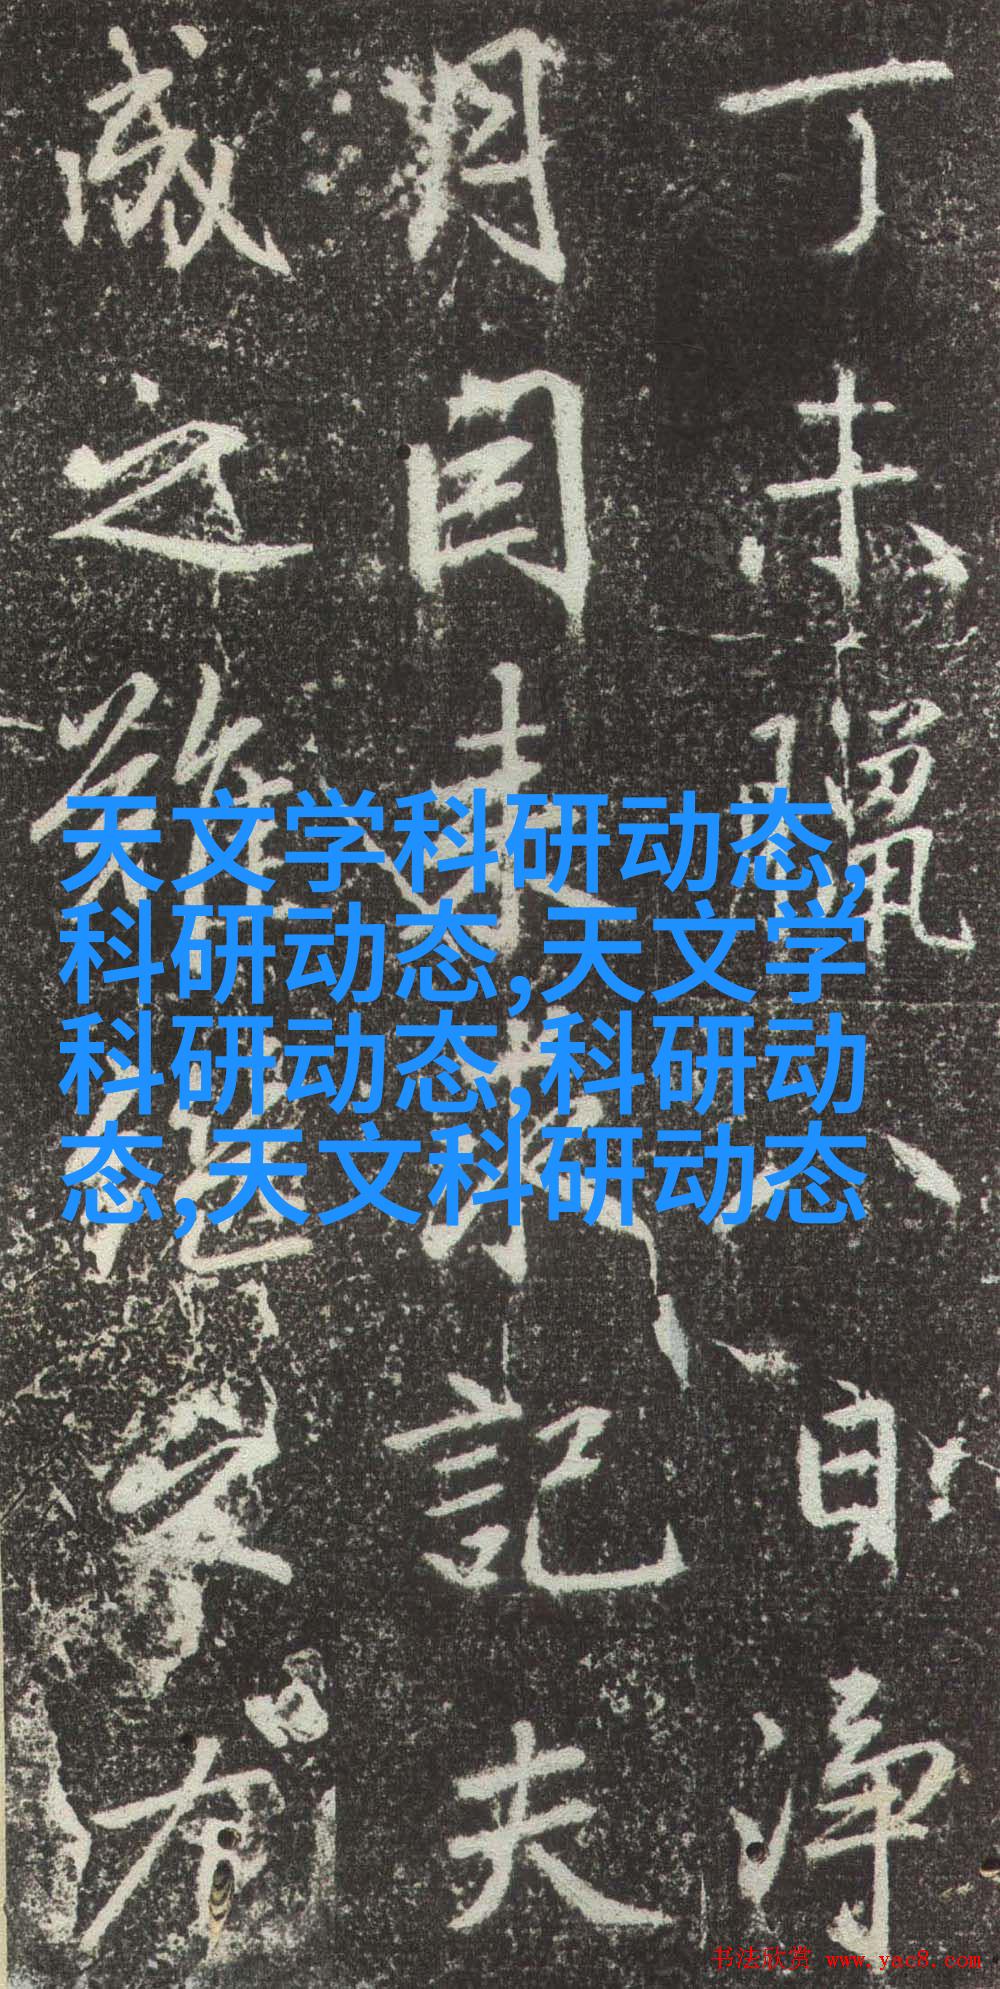 丁未臘八日淨
月因来求記夫
成之難繼守尤
天文学科研动态,
科研动态,天文学
科研动态,科研动
态,天文科研动态
书法欣赏 www.yac8.com